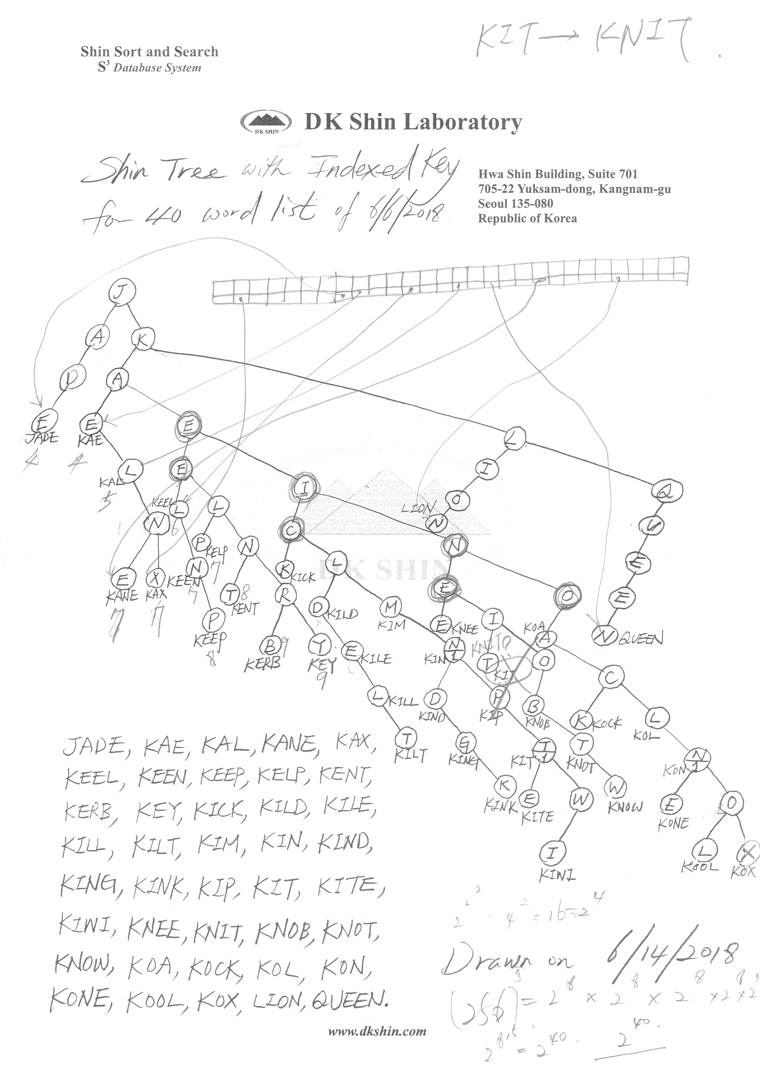 KIT → KNIT
Shin Sort and Search
S³ Database System
DK SHIN
DK Shin Laboratory
Shin Tree with Indexed Key
for 40 word list of 6/6/2018
Hwa Shin Building, Suite 701
705-22 Yuksam-dong, Kangnam-gu
Seoul 135-080
Republic of Korea
J
A K
D A
E E E L
JADE KAE
4 4
L E I I Q
KAL KEEL LION
5 6
N L L C O N U
P KELP N K KICK L DK SHIN N E
E X N T R D M E I O E
KANE KAX KEEN KENT KILD KIM KNEE KOA N QUEEN
7 7 7 8
P B Y E N1 T O A C
KEEP KERB KEY KILE KIN KIT
8 9 9
L D P B K L
KILL KIND KIP KNOB KOCK KOL
T G I1 T N1
KILT KING KIT KNOT KON
K E W W E O
KINK KITE KNOW KONE
I L X
KIWI KOOL KOX
JADE, KAE, KAL, KANE, KAX,
KEEL, KEEN, KEEP, KELP, KENT,
KERB, KEY, KICK, KILD, KILE,
KILL, KILT, KIM, KIN, KIND,
KING, KINK, KIP, KIT, KITE,
KIWI, KNEE, KNIT, KNOB, KNOT,
KNOW, KOA, KOCK, KOL, KON,
KONE, KOOL, KOX, LION, QUEEN.
4² = 16 = 2⁴
Drawn on 6/14/2018
(256)⁵ = 2⁸ × 2⁸ × 2⁸ × 2⁸ × 2⁸
2⁸·⁵ = 2⁴⁰. 2⁴⁰.
www.dkshin.com